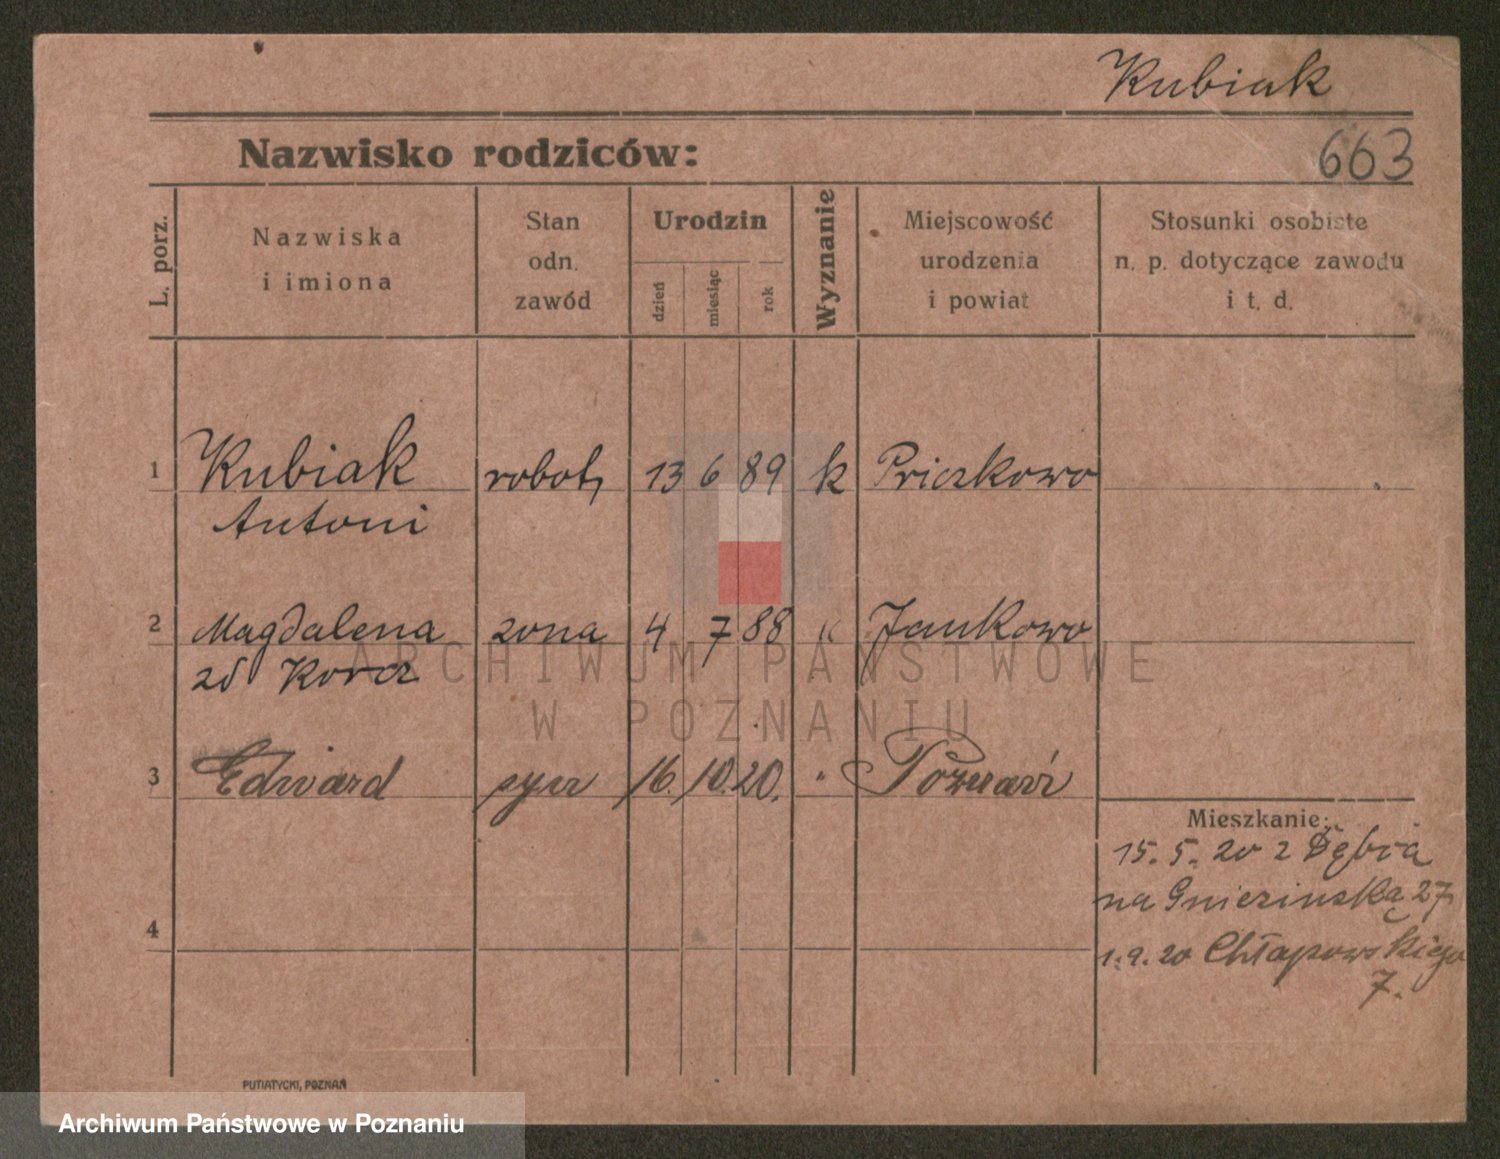 Kubiak
Nazwisko rodziców:
663
L. porz.
Nazwiska
i imiona
Stan
odn.
zawód
Urodzin
dzień
miesiąc
rok
Wyznanie
Miejscowość
urodzenia
i powiat
Stosunki osobiste
n. p. dotyczące zawodu
i t. d.
1 Kubiak robotn 13 6 89 k Priczkowo
Antoni
2 Magdalena zona 4 7 88 " Jankowo
zd Korcz
ARCHIWUM PAŃSTWOWE
W POZNANIU
3 Edward syn 16. 10. 20. " Poznań
Mieszkanie:
15. 5. 20 z Dębca
na Gnieźinską 27
4
1. 9. 20 Chłapowskiego
7.
PUTIATYCKI, POZNAŃ
Archiwum Państwowe w Poznaniu